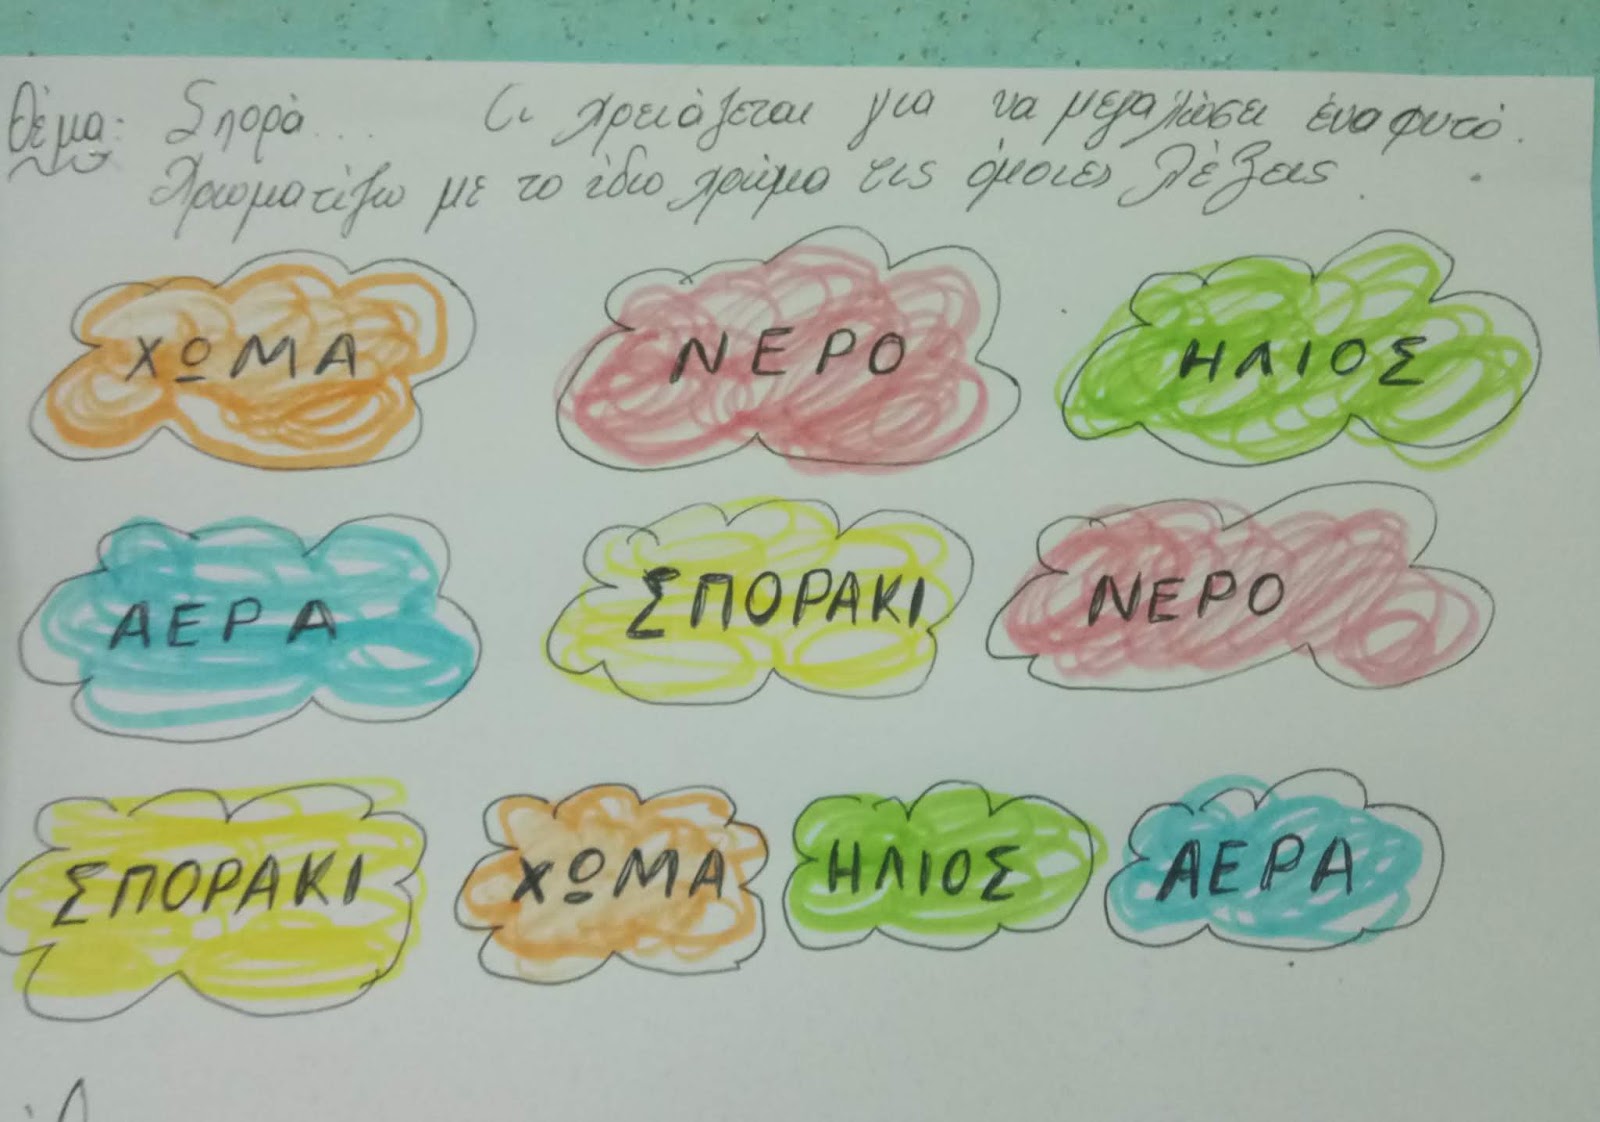 Θέμα: Σπορά... Τι χρειάζεται για να μεγαλώσει ένα φυτό.
Χρωματίζω με το ίδιο χρώμα τις όμοιες λέξεις.
ΧΩΜΑ ΝΕΡΟ ΗΛΙΟΣ
ΑΕΡΑ ΣΠΟΡΑΚΙ ΝΕΡΟ
ΣΠΟΡΑΚΙ ΧΩΜΑ ΗΛΙΟΣ ΑΕΡΑ